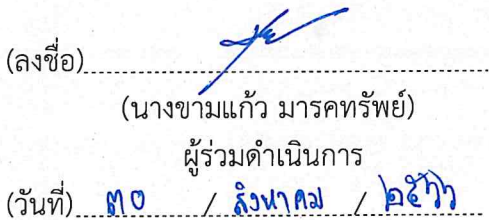 (ลงชื่อ)
(นางขามแก้ว มารคทรัพย์)
ผู้ร่วมดำเนินการ
(วันที่) ๓๐ / สิงหาคม / ๒๕๖๖